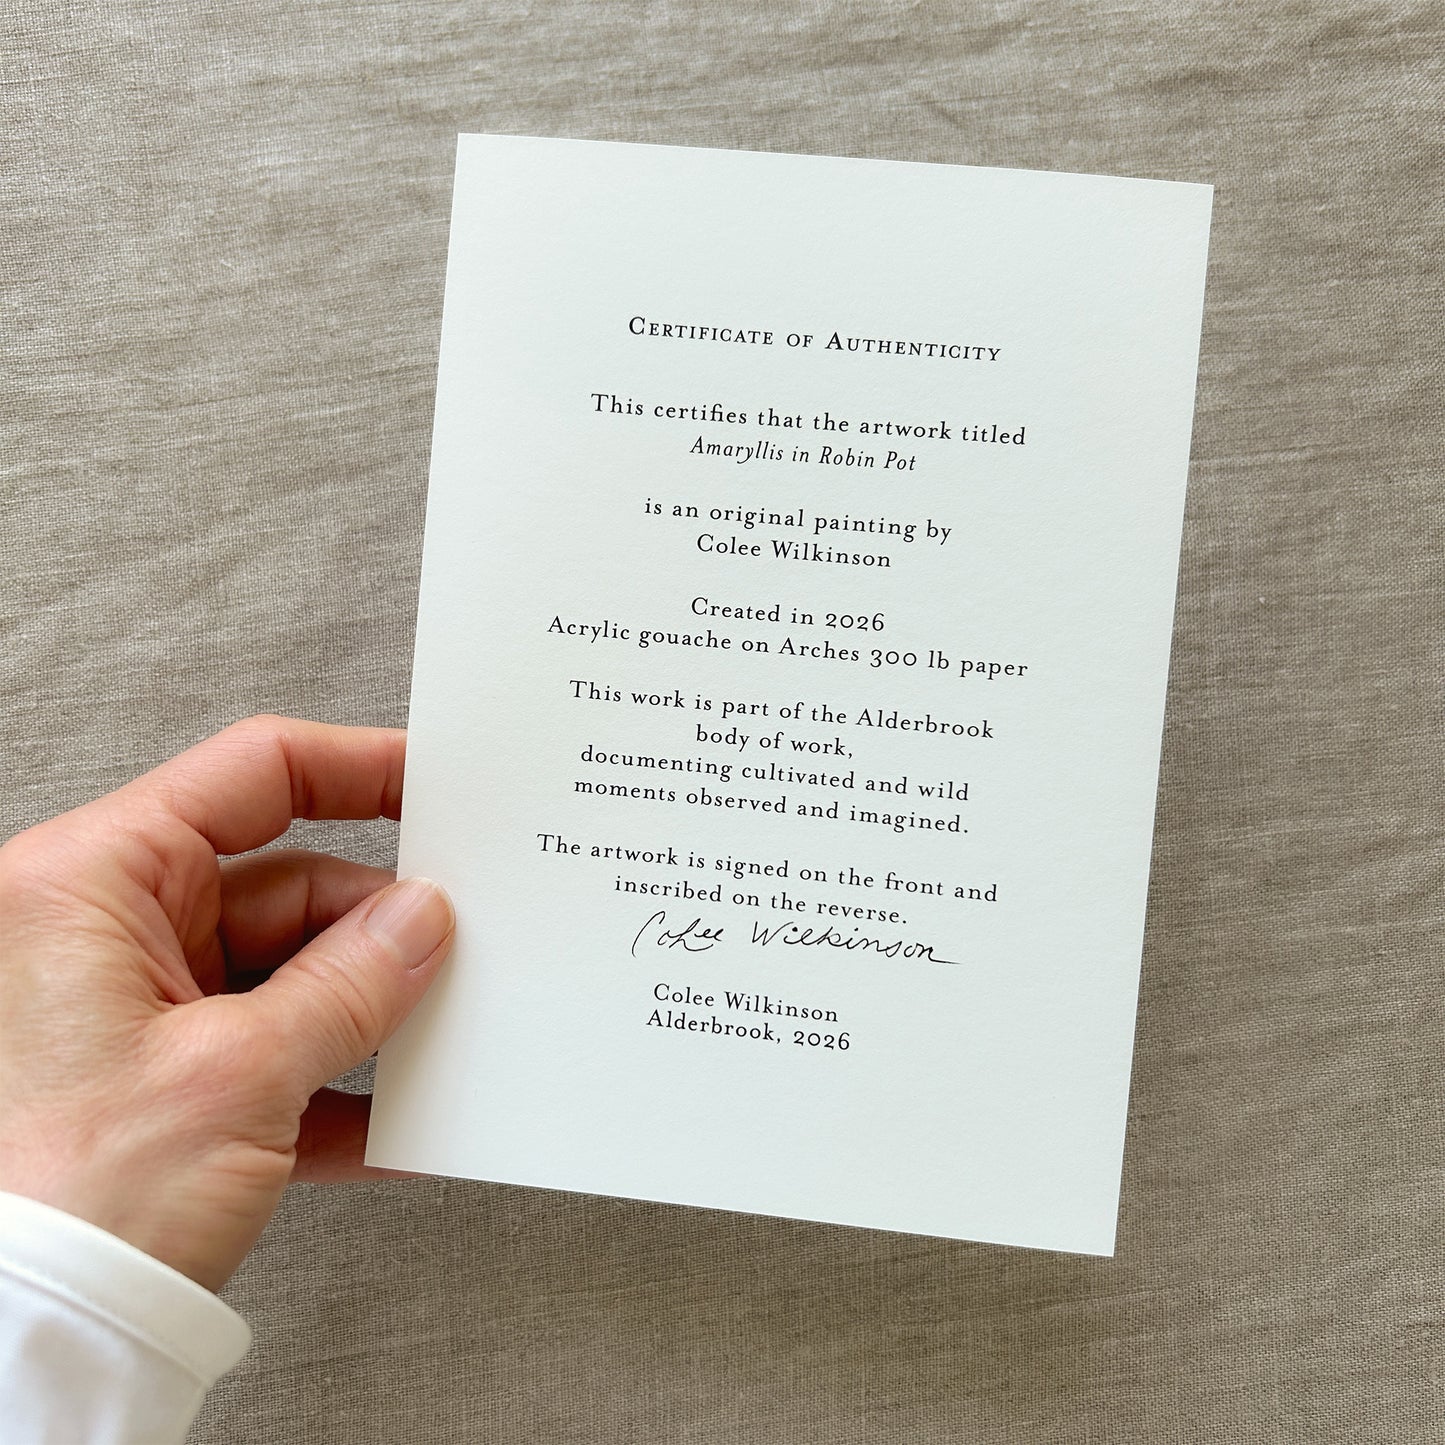 Certificate of Authenticity
This certifies that the artwork titled
Amaryllis in Robin Pot
is an original painting by
Colee Wilkinson
Created in 2026
Acrylic gouache on Arches 300 lb paper
This work is part of the Alderbrook
body of work,
documenting cultivated and wild
moments observed and imagined.
The artwork is signed on the front and
inscribed on the reverse.
Colee Wilkinson
Colee Wilkinson
Alderbrook, 2026